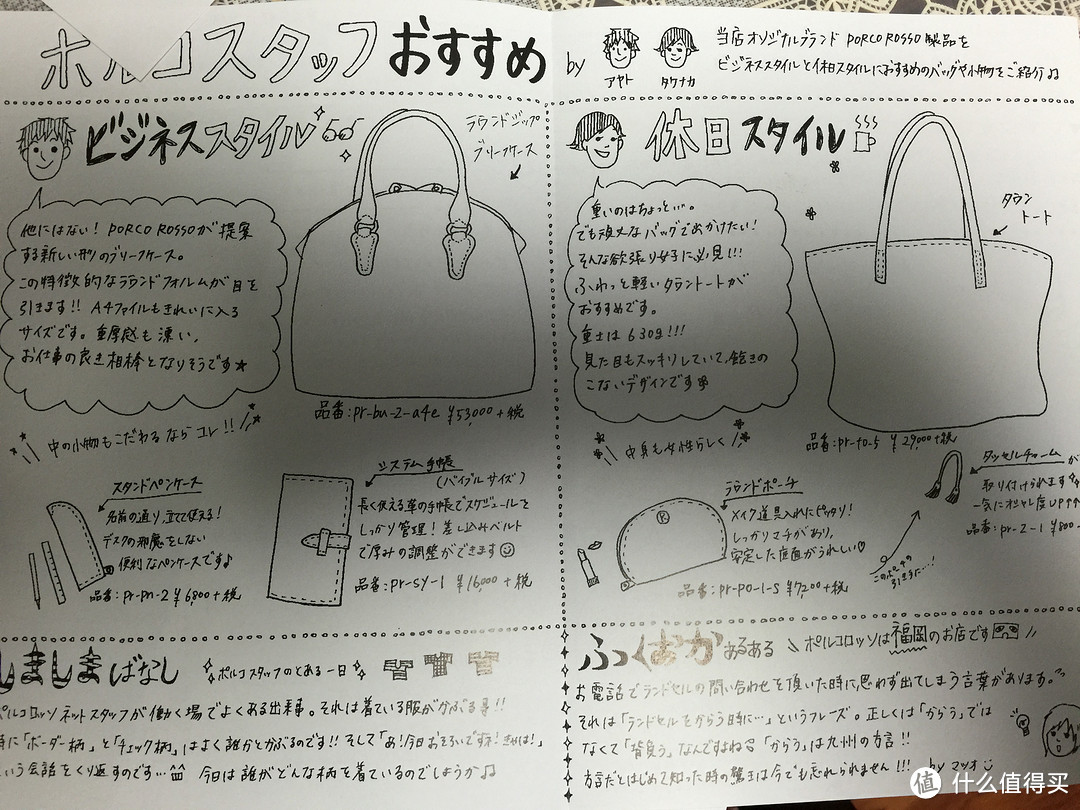 ポルコスタッフ おすすめ by アヤト タケナカ
当店オリジナルブランド PORCO ROSSO 製品を
ビジネススタイルと休日スタイルにおすすめのバッグや小物をご紹介♫
ビジネススタイル
ラウンドジップ
ブリーフケース
他にはない！PORCO ROSSOが提案
する新しい形のブリーフケース。
この特徴的なラウンドフォルムが目を
引きます!! A4ファイルもきれいに入る
サイズです。重厚感も漂い、
お仕事の良き相棒となりそうです★
品番:pr-bu-2-a4e ¥53,000+税
中の小物もこだわるならコレ!!
スタンドペンケース
名前の通り、立てて使える！
デスクの邪魔をしない
便利なペンケースです♪
品番:pr-pn-2 ¥6,800+税
システム手帳
(バイブルサイズ)
長く使える革の手帳でスケジュールを
しっかり管理！差し込みベルト
で厚みの調整ができます☺
品番:pr-sy-1 ¥16,000+税
休日スタイル
タラン
トート
重いのはちょっと…。
でも頑丈なバッグで出かけたい！
そんな欲張り女子に必見!!!
ふわっと軽いタラントートが
おすすめです。
重さは630g!!!
見た目もスッキリしていて、飽きの
こないデザインです
品番:pr-to-5 ¥29,000+税
中身も女性らしく
ラウンドポーチ
メイク道具入れにピッタリ！
しっかりマチがあり、
安定した底面がうれしい♡
品番:pr-po-1-s ¥7,200+税
タッセルチャームが
取り付けられます
一気にオシャレ度UP↑↑
品番:pr-z-1 ¥800
このポーチの
引き手に…！
しましまばなし ポルコスタッフのとある一日
ポルコロッソネットスタッフが働く場でよくある出来事。それは着ている服がかぶる事!!
特に「ボーダー柄」と「チェック柄」はよく誰かとかぶるのです!! そして「あ！今日おそろいですネ！きゃは！」
という会話をくり返すのです… 今日は誰がどんな柄を着ているのでしょうか♫
ふくおかあるある ポルコロッソは福岡のお店です
お電話でランドセルの問い合わせを頂いた時に、思わず出てしまう言葉があります。
それは「ランドセルをからう時に…」というフレーズ。正しくは「からう」では
なくて「背負う」なんですよね 「からう」は九州の方言!!
方言だとはじめて知った時の驚きは今でも忘れられません!!! by マツオ
值 什么值得买